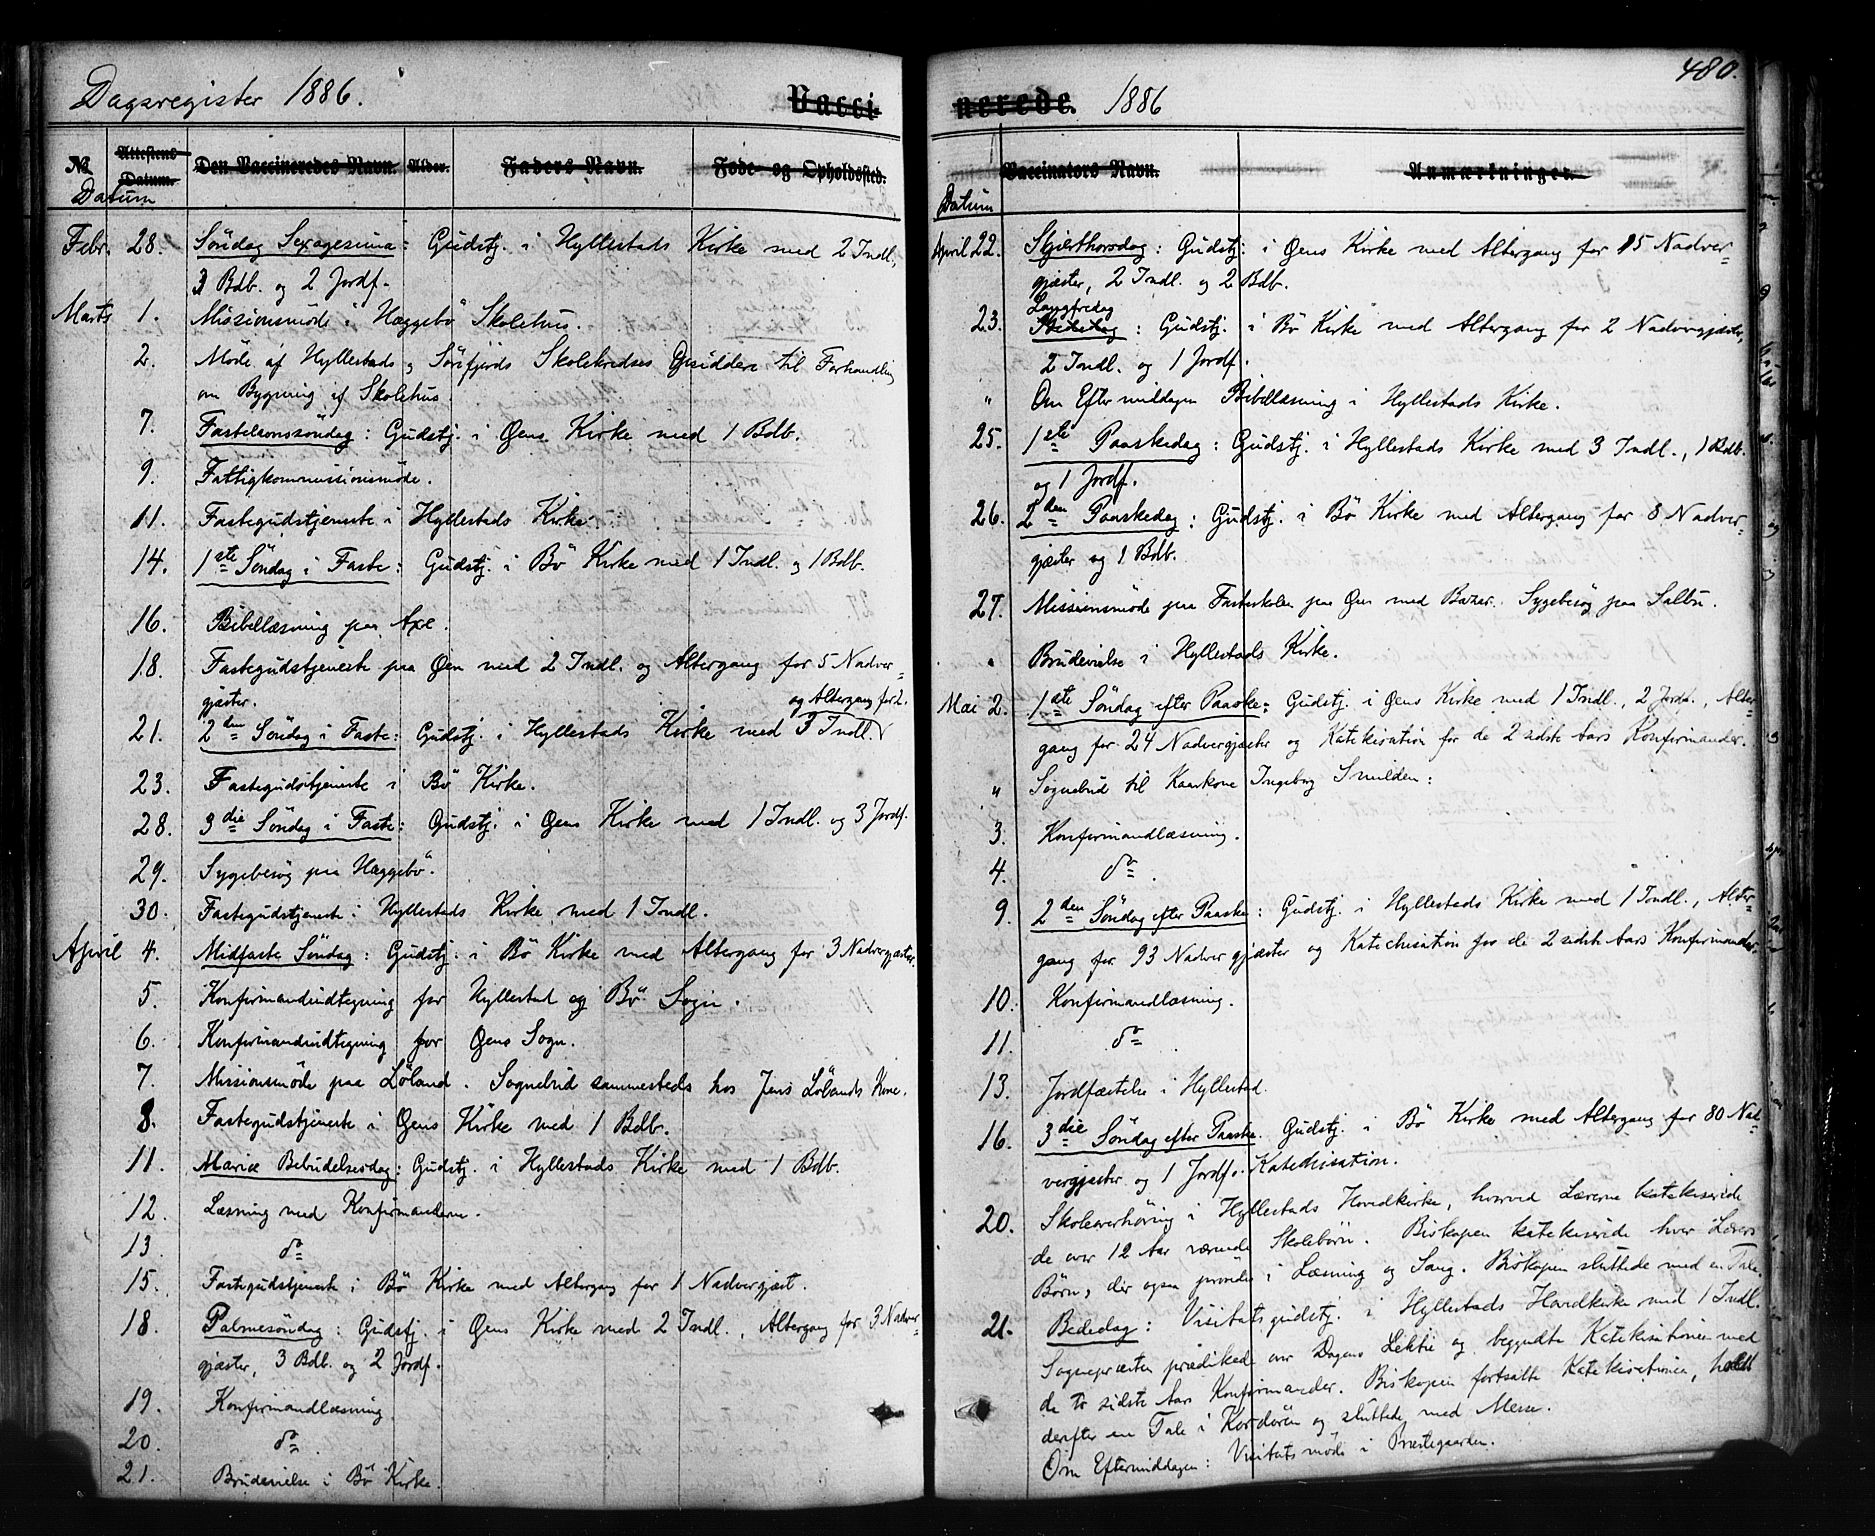 Dagsregister 1886.
Vacci-
No
Attestens Datum.
Den Vaccineredes Navn.
Alder.
Faders Navn.
Føde- og Opholdssted.
Datum
Febr. 28. Søndag Sexagesima: Gudstj. i Hyllestads Kirke med 2 Indl.,
3 Bdb. og 2 Jordf.
Marts 1. Missionsmöde i Hæggebö Skolehus.
2. Möde af Hyllestads og Sörefjords Skolekredses Opsiddere til Forhandling
om Bygning af Skolehus.
7. Fastelavnssöndag: Gudstj. i Øens Kirke med 1 Bdb.
9. Fattigkommissionsmöde.
11. Fastegudstjeneste i Hyllestads Kirke.
14. 1ste Söndag i Faste: Gudstj. i Bö Kirke med 1 Indl. og 1 Bdb.
16. Bibellæsning paa Axe.
18. Fastegudstjeneste paa Øen med 2 Indl. og Altergang for 5 Nadver-
gjæster.
og Altergang for 2.
21. 2den Söndag i Faste: Gudstj. i Hyllestads Kirke med 3 Indl.
23. Fastegudstjeneste i Bö Kirke.
28. 3die Söndag i Faste: Gudstj. i Øens Kirke med 1 Indl. og 3 Jordf.
29. Sygebesög paa Hæggebö.
30. Fastegudstjeneste i Hyllestads Kirke med 1 Indl.
April 4. Midfaste Söndag: Gudstj. i Bö Kirke med Altergang for 3 Nadvergjæster.
5. Konfirmandudtegning for Hyllestad og Bö Sogn.
6. Konfirmandudtegning for Øens Sogn.
7. Missionsmöde paa Löland. Sognebud sammesteds hos Jens Lölands Kone.
8. Fastegudstjeneste i Øens Kirke med 1 Bdb.
11. Mariæ Bebudelsesdag: Gudstj. i Hyllestads Kirke med 1 Bdb.
12. Læsning med Konfirmanderne.
13. do
15. Fastegudstjeneste i Bö Kirke med Altergang for 1 Nadvergjæst.
18. Palmesöndag: Gudstj. i Øens Kirke med 2 Indl., Altergang for 3 Nadver-
gjæster, 3 Bdb. og 2 Jordf.
19. Konfirmandlæsning.
20. do.
21. Brudevielse i Bö Kirke.
480.
nerede. 1886
Vaccinators Navn.
Anmærkninger.
Datum
April 22. Skjærthorsdag: Gudstj. i Øens Kirke med Altergang for 15 Nadver-
gjæster, 2 Indl. og 2 Bdb.
Langfredag
23. : Gudstj. i Bö Kirke med Altergang for 2 Nadvergjæster,
2 Indl. og 1 Jordf.
" Om Eftermiddagen Bibellæsning i Hyllestads Kirke.
25. 1ste Paaskedag: Gudstj. i Hyllestads Kirke med 3 Indl., 1 Bdb.
og 1 Jordf.
26. 2den Paaskedag: Gudstj. i Bö Kirke med Altergang for 8 Nadver-
gjæster og 1 Bdb.
27. Missionsmöde paa Fastskolen paa Øen med Bazar. Sygebesög paa Salbu.
" Brudevielse i Hyllestads Kirke.
Mai 2. 1ste Söndag efter Paaske: Gudstj. i Øens Kirke med 1 Indl., 2 Jordf., Alter-
gang for 24 Nadvergjæster og Katekisation for de 2 sidste Aars Konfirmander.
" Sognebud til Kaarkone Ingeborg Smilden:
3. Konfirmandlæsning.
4. do.
9. 2den Söndag efter Paaske: Gudstj. i Hyllestads Kirke med 1 Indl., Alter-
gang for 93 Nadvergjæster og Katechisation for de 2 sidste Aars Konfirmander.
10. Konfirmandlæsning.
11. do
13. Jordfæstelse i Hyllestad.
16. 3die Söndag efter Paaske. Gudstj. i Bö Kirke med Altergang for 80 Nad-
vergjæster og 1 Jordf. Katechisation.
20. Skoleoverhöring i Hyllestads Hovedkirke, hvorved Lærerne katekiserede
de over 12 Aar værende Skolebörn. Biskopen katekiserede hver Lærers
Börn, der ogsaa prövedes i Læsning og Sang. Biskopen sluttede med en Tale.
21. Bededag: Visitatsgudstj. i Hyllestads Hovedkirke med 1 Indl.
Sognepræsten prædikede over Dagens Lektie og begyndte Katekisationen med
de to sidste Aars Konfirmander. Biskopen fortsatte Katekisationen, holdt
derefter en Tale i Kordören og sluttede med Messe.
Om Eftermiddagen: Visitatsmöde i Præstegaarden.